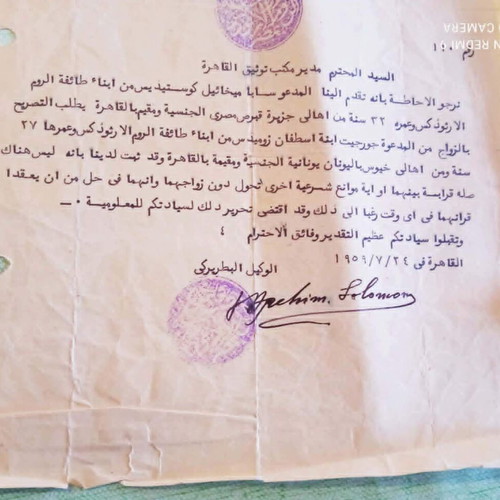 السيد المحترم مدير مكتب توثيق القاهرة
نرجو الاحاطة بانه تقدم الينا المدعو سابا ميخائيل كوستيديس من ابناء طائفة الروم
الارثوذكس وعمره ٣٢ سنة من اهالى جزيرة قبرص مصرى الجنسية ومقيم بالقاهرة يطلب التصريح
بالزواج من المدعوة جورجيت ابنة اسطفان زوميدس من ابناء طائفة الروم الارثوذكس وعمرها ٢٧
سنة ومن اهالى خيوس باليونان يونانية الجنسية ومقيمة بالقاهرة وقد ثبت لدينا بانه ليس هناك
صله قرابسة بينهما او اية موانع شرعية اخرى تحول دون زواجهما وانهما فى حل من ان يعقدا
قرانهما فى اى وقت رغبا الى ذلك وقد اقتضى تحرير ذلك لسيادتكم للمعلومية ٠ــ
وتقبلوا سيادتكم عظيم التقدير وفائق الاحترام ،
القاهرة فى ٢٤/٧/١٩٥٩
الوكيل البطريركى
Solomon
N REDMI 6
CAMERA